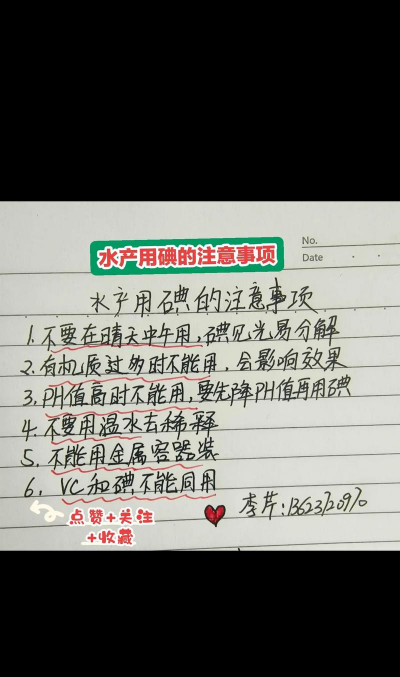 水产用碘的注意事项
No.
Date
水产用碘的注意事项
1. 不要在晴天中午用，碘见光易分解
2. 有机质过多时不能用，会影响效果
3. PH值高时不能用，要先降PH值再用碘
4. 不要用温水去稀释
5. 不能用金属容器装
6. VC和碘不能同用
李芹：
点赞+关注
+收藏